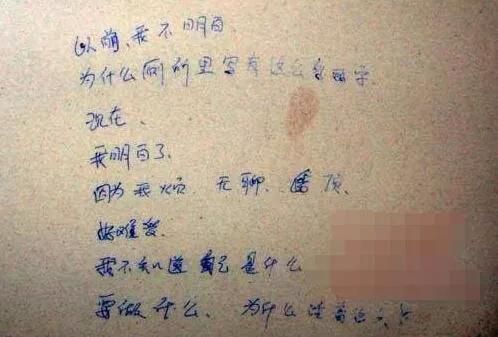 以前、我不明白
为什么厕所里写有这么多的字.
现在、
我明白了.
因为我烦 无聊、
好难受.
我不知道自己是什么
要做什么、为什么活着这么